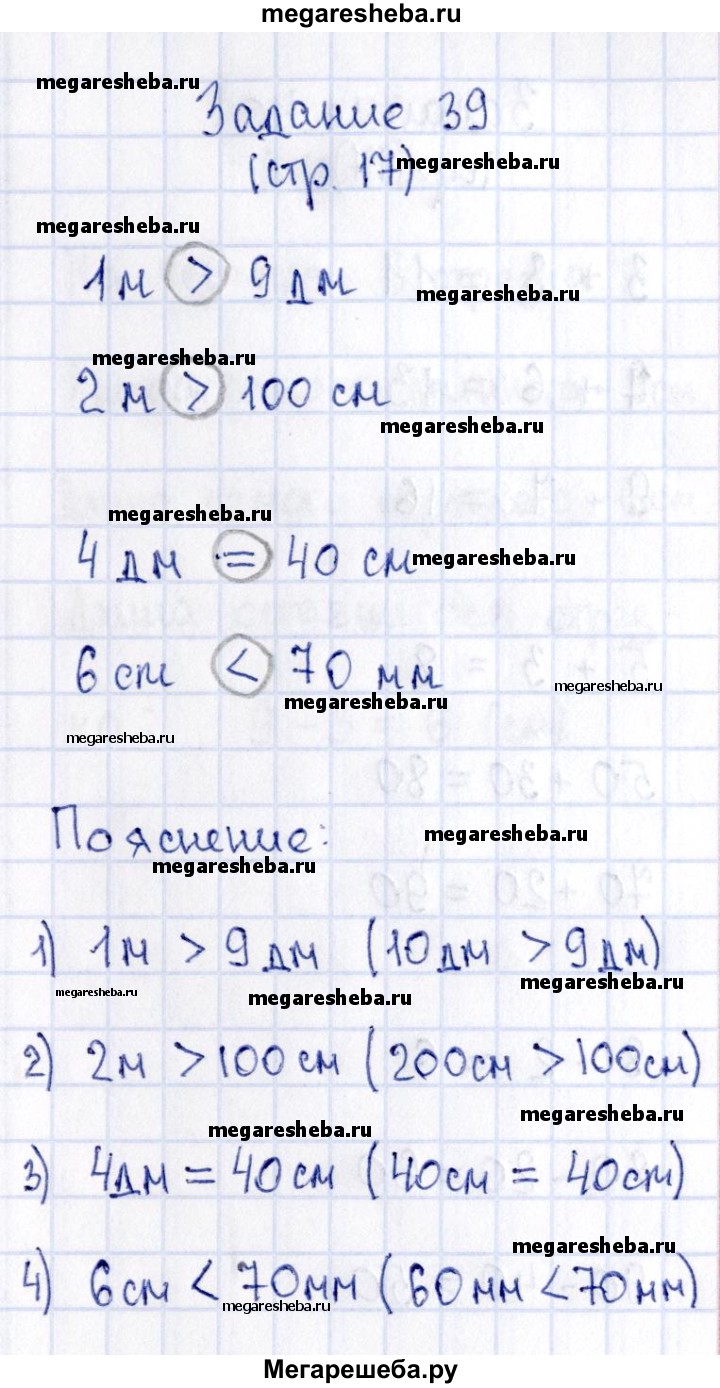 megaresheba.ru
megaresheba.ru
Задание 39
(стр. 17) megaresheba.ru
megaresheba.ru
1 м > 9 дм
megaresheba.ru
megaresheba.ru
2 м > 100 см
megaresheba.ru
megaresheba.ru
4 дм = 40 см megaresheba.ru
6 см < 70 мм
megaresheba.ru
megaresheba.ru
megaresheba.ru
Пояснение:
megaresheba.ru
megaresheba.ru
1) 1 м > 9 дм (10 дм > 9 дм)
megaresheba.ru
megaresheba.ru
megaresheba.ru
2) 2 м > 100 см (200 см > 100 см)
megaresheba.ru
megaresheba.ru
3) 4 дм = 40 см (40 см = 40 см)
megaresheba.ru
4) 6 см < 70 мм (60 мм < 70 мм)
megaresheba.ru
Мегарешеба.ру